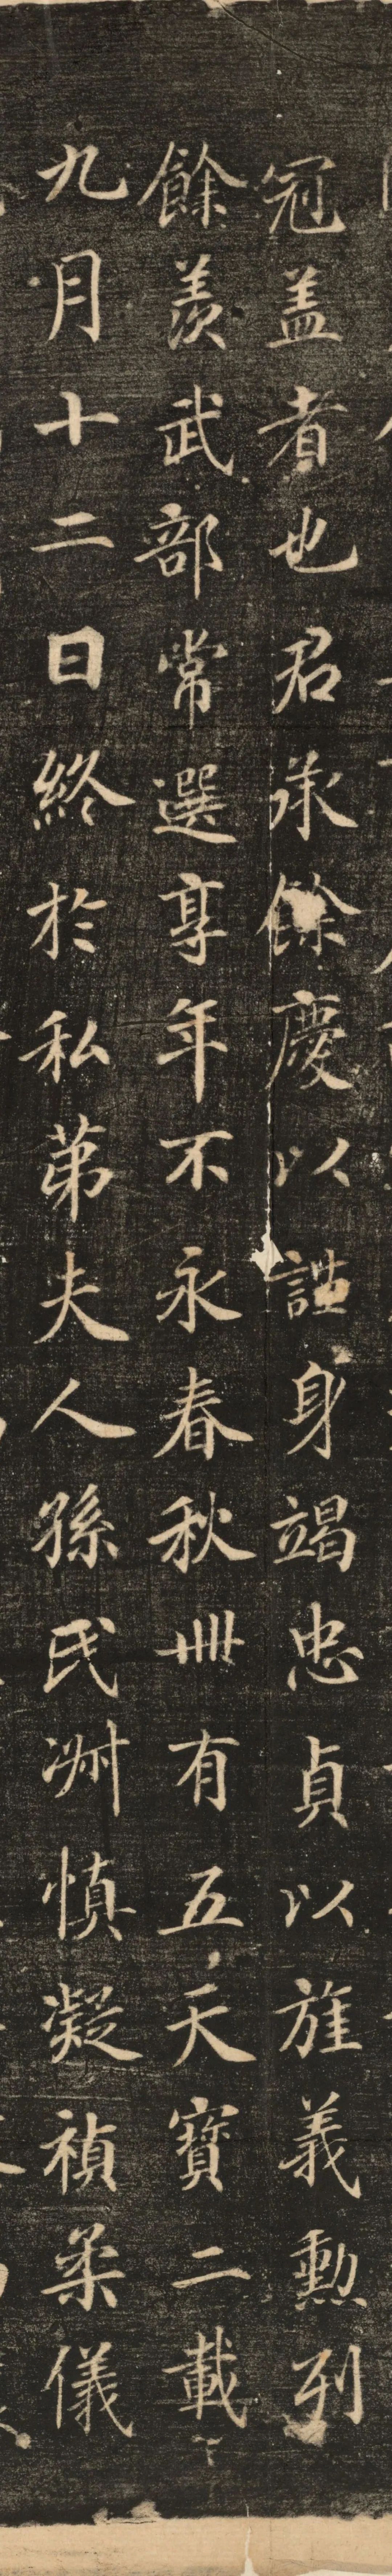 冠盖者也君承餘慶以誕身竭忠貞以旌義勲列
餘羨武部常選享年不永春秋卌有五天寶二載
九月十二日終於私苐夫人孫氏淋慎凝禎柔儀